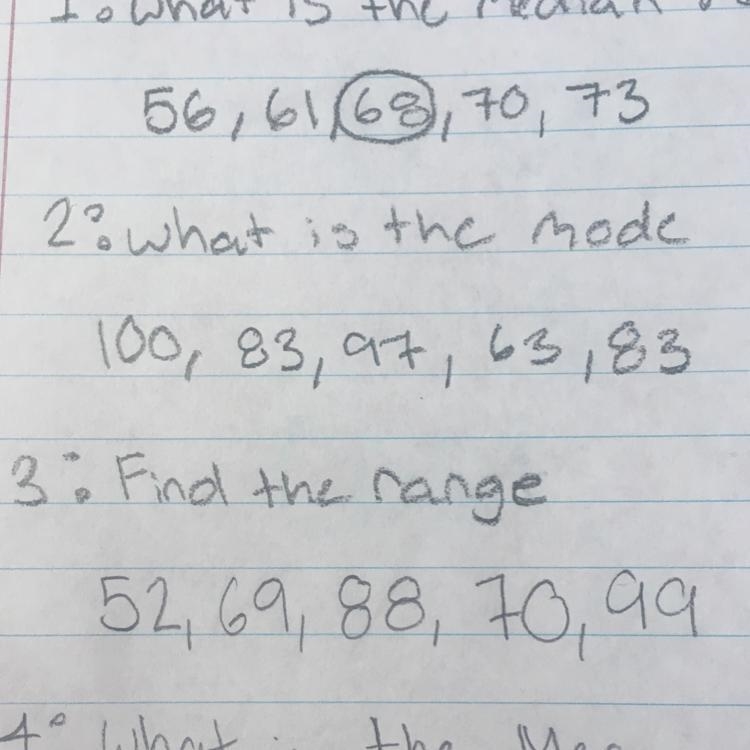 1. What is the Median
56, 61, 68, 70, 73
2. What is the mode
100, 83, 97, 63, 83
3. Find the range
52, 69, 88, 70, 99
4. What is the